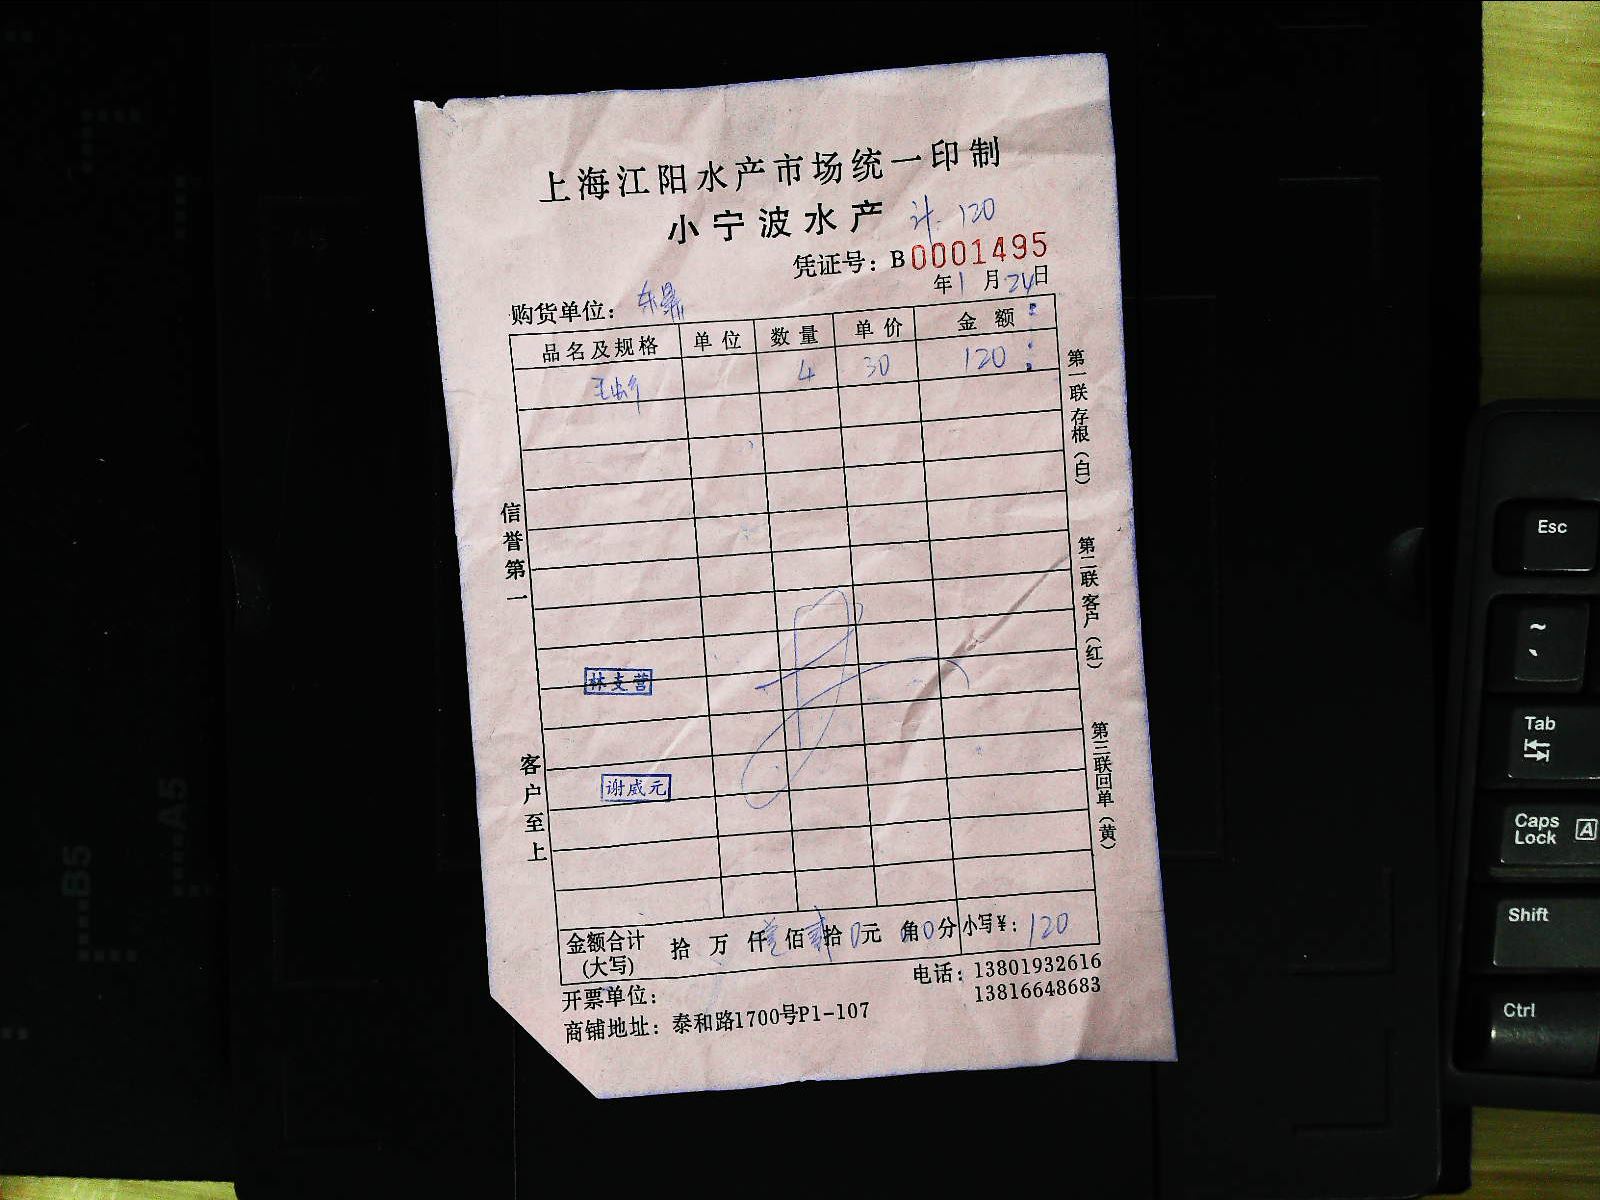 上海江阳水产市场统一印制
小宁波水产 计 120
凭证号：B0001495
年1月24日
购货单位：东鼎
品名及规格 单位 数量 单价 金额
4 30 120
第一联存根（白）
第二联客户（红）
第三联回单（黄）
信誉第一
客户至上
林支营
谢威元
金额合计(大写) 拾 万 仟壹佰贰拾0元 角0分 小写¥：120
开票单位： 电话：13801932616
13816648683
商铺地址：泰和路1700号P1-107
B5
A5
Esc
~
Tab
Caps Lock A
Shift
Ctrl